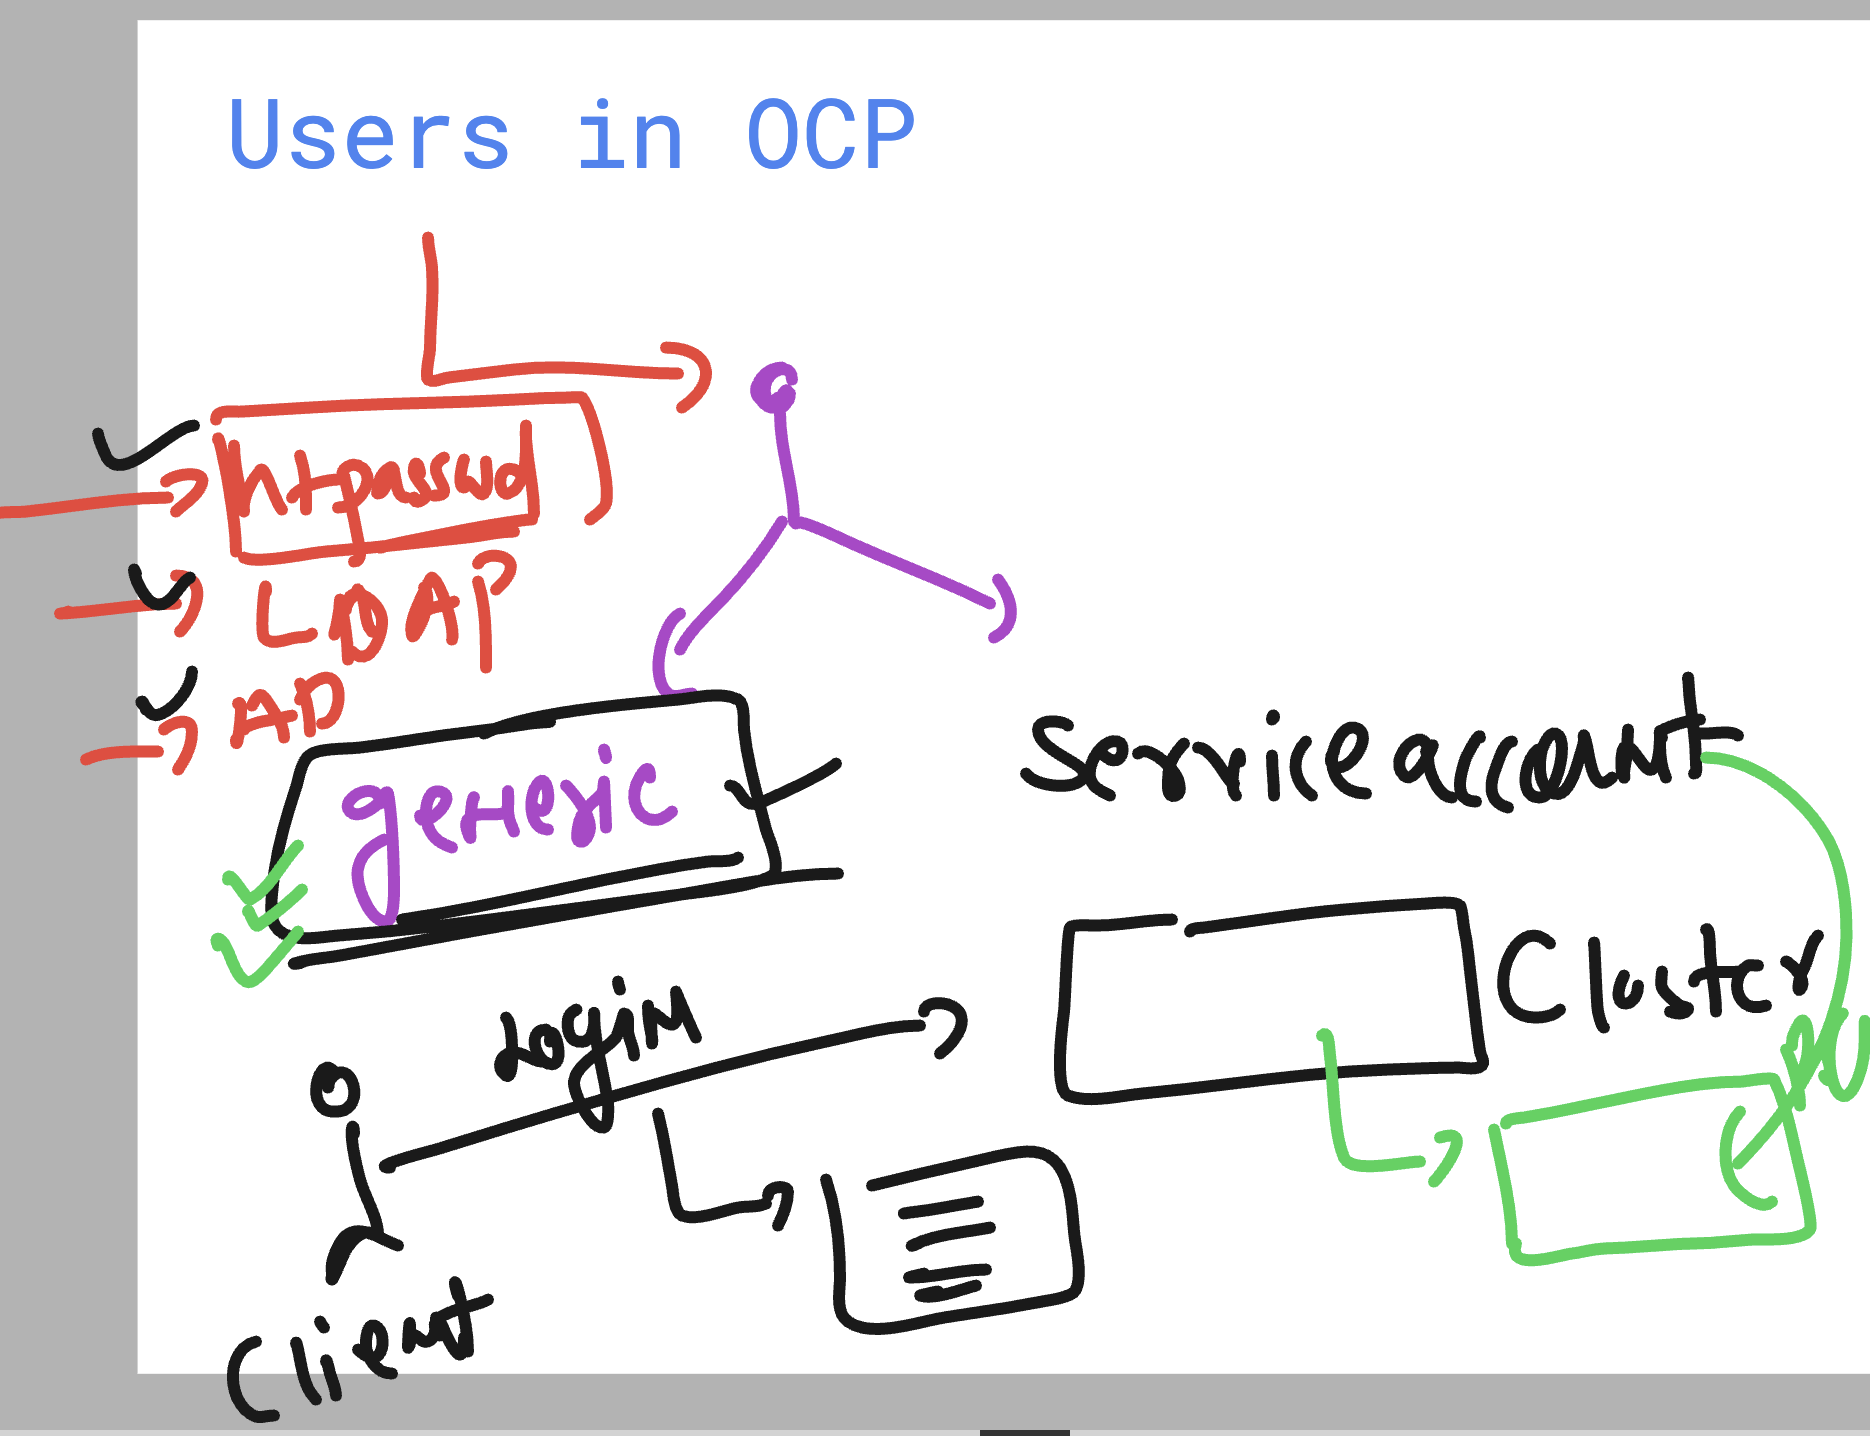 Users in OCP
htpasswd
LDAP
AD
generic
Service account
Cluster
Login
Client